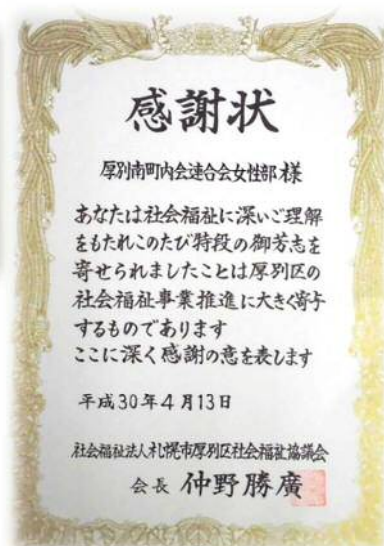 感謝状
厚別南町内会連合会女性部様
あなたは社会福祉に深いご理解
をもたれこのたび特段の御芳志を
寄せられましたことは厚別区の
社会福祉事業推進に大きく寄与
するものであります
ここに深く感謝の意を表します
平成30年4月13日
社会福祉法人札幌市厚別区社会福祉協議会
会長 仲野勝廣